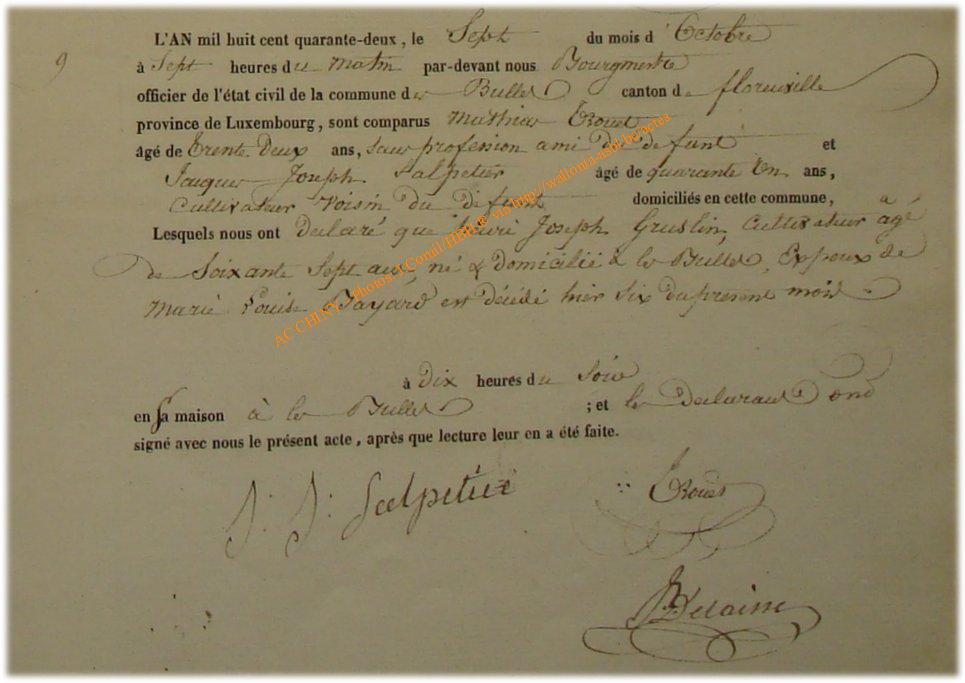 9
L'AN mil huit cent quarante-deux, le Sept du mois d'Octobre
à Sept heures du matin par-devant nous Bourgmestre
officier de l'état civil de la commune des Bulles canton de florenville
province de Luxembourg, sont comparus Mathias
âgé de Trente-Deux ans, sans profession ami du défunt et
Jaques Joseph Salpetier âgé de quarante Un ans,
Cultivateur Voisin du défunt domiciliés en cette commune,
Lesquels nous ont declaré que henri Joseph Gruslin, Cultivateur âgé
de Soixante Sept ans, né & domicilié à les Bulles, Epoux de
Marie Louise Bayard est décédé hier six du present mois
à Dix heures du Soir
en sa maison à les Bulles ; et les Declarants ont
signé avec nous le présent acte, après que lecture leur en a été faite.
J: J: Salpetier
AC CHINY - photos: via http://wallonia-asbl.be/actes